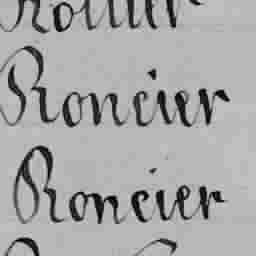 Roncier
Roncier